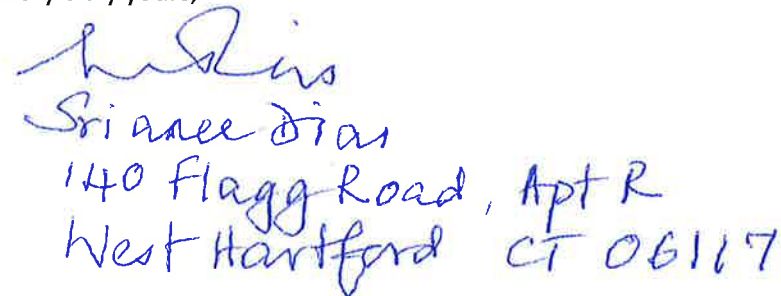 Srianee Dias
140 Flagg Road, Apt R
West Hartford CT 06117